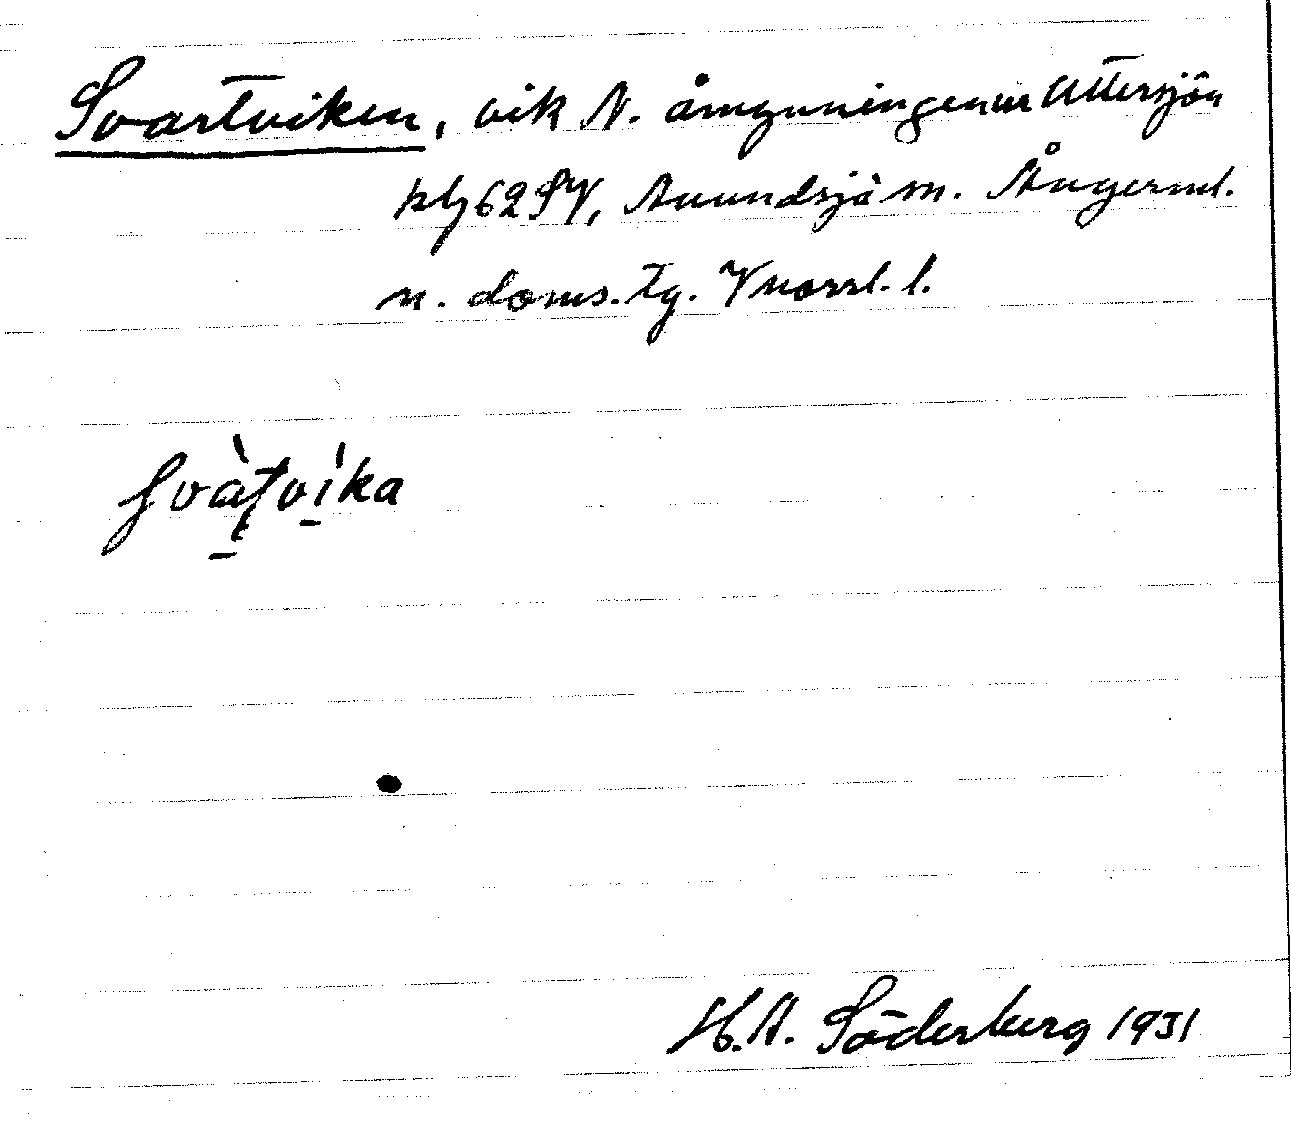 Svartviken, vik N. åmynningen ur Uttersjön
kbl 62 SV, Anundsjö sn. Ångerml.
n. doms. tg. Vnorrl. l.
svàtvika
H.A. Söderberg 1931